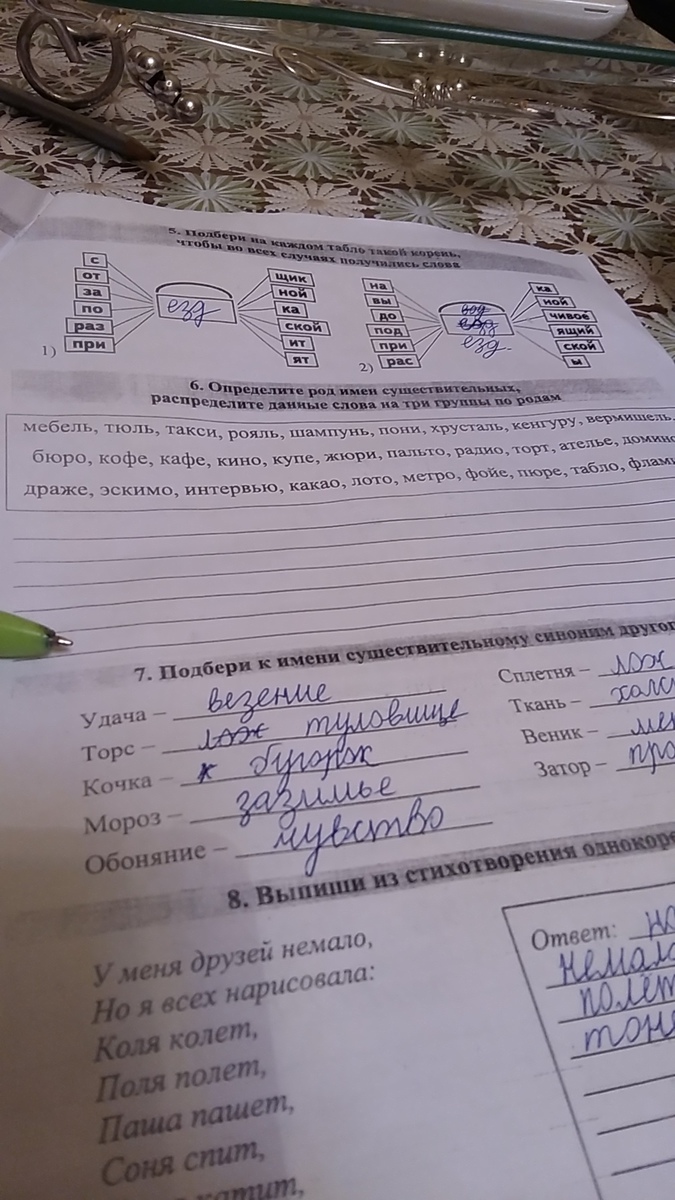 5. Подбери на каждом табло такой корень,
чтобы во всех случаях получились слова
с
от
за
по
раз
при
1)
езд
щик
ной
ка
ской
ит
ят
на
вы
до
под
при
рас
2)
езд
ка
ной
чивое
ящий
ской
ы
6. Определите род имен существительных,
распределите данные слова на три группы по родам
мебель, тюль, такси, рояль, шампунь, пони, хрусталь, кенгуру, вермишель,
бюро, кофе, кафе, кино, купе, жюри, пальто, радио, торт, ателье, домино
драже, эскимо, интервью, какао, лото, метро, фойе, пюре, табло, флами
7. Подбери к имени существительному синоним другог
Удача – везение
Торс – лож туловище
Кочка – к бугорок
Мороз – зазимье
Обоняние – чувство
Сплетня – лож
Ткань – холс
Веник –
Затор – про
8. Выпиши из стихотворения однокоре
У меня друзей немало,
Но я всех нарисовала:
Коля колет,
Поля полет,
Паша пашет,
Соня спит,
катит,
Ответ: но
немало
полет
тоня